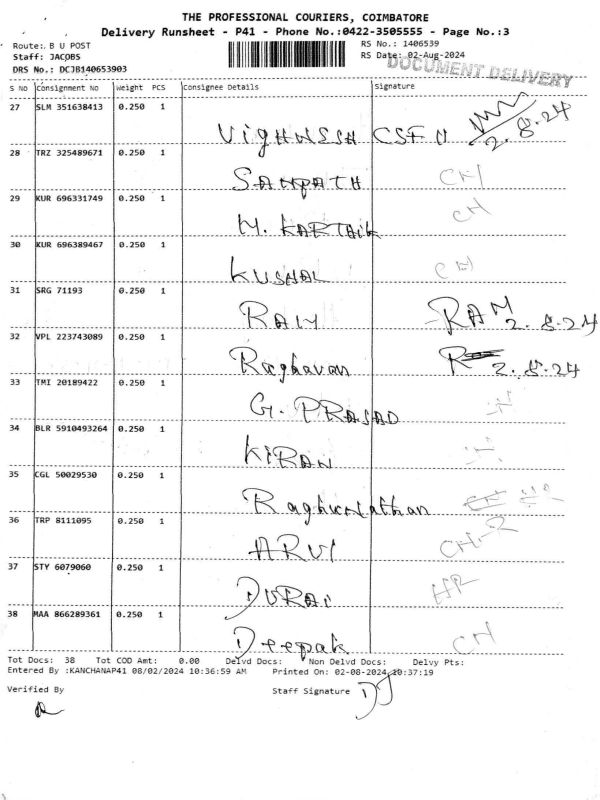 THE PROFESSIONAL COURIERS, COIMBATORE
Delivery Runsheet - P41 - Phone No.:0422-3505555 - Page No.:3
Route: B U POST RS No.: 1406539
Staff: JACOBS RS Date: 02-Aug-2024
DOCUMENT DELIVERY
DRS No.: DCJB140653903
S NO Consignment No Weight PCS Consignee Details Signature
27 SLM 351638413 0.250 1 CSF 2.8.24
28 TRZ 325489671 0.250 1 SAMPATH
29 KUR 696331749 0.250 1 M. KARTHIK CH
30 KUR 696389467 0.250 1 KUSHAL CH
31 SRG 71193 0.250 1 RAM RAM 2.8.24
32 VPL 223743089 0.250 1 Raghavan 2.8.24
33 TMI 20189422 0.250 1 G. PRASAD
34 BLR 5910493264 0.250 1 KIRAN
35 CGL 50029530 0.250 1 Raghunathan
36 TRP 8111095 0.250 1 ARVI CH-R
37 STY 6079060 0.250 1 DURAI
38 MAA 866289361 0.250 1 Deepak CH
Tot Docs: 38 Tot COD Amt: 0.00 Delvd Docs: Non Delvd Docs: Delvy Pts:
Entered By :KANCHANAP41 08/02/2024 10:36:59 AM Printed On: 02-08-2024 10:37:19
Verified By Staff Signature DJ